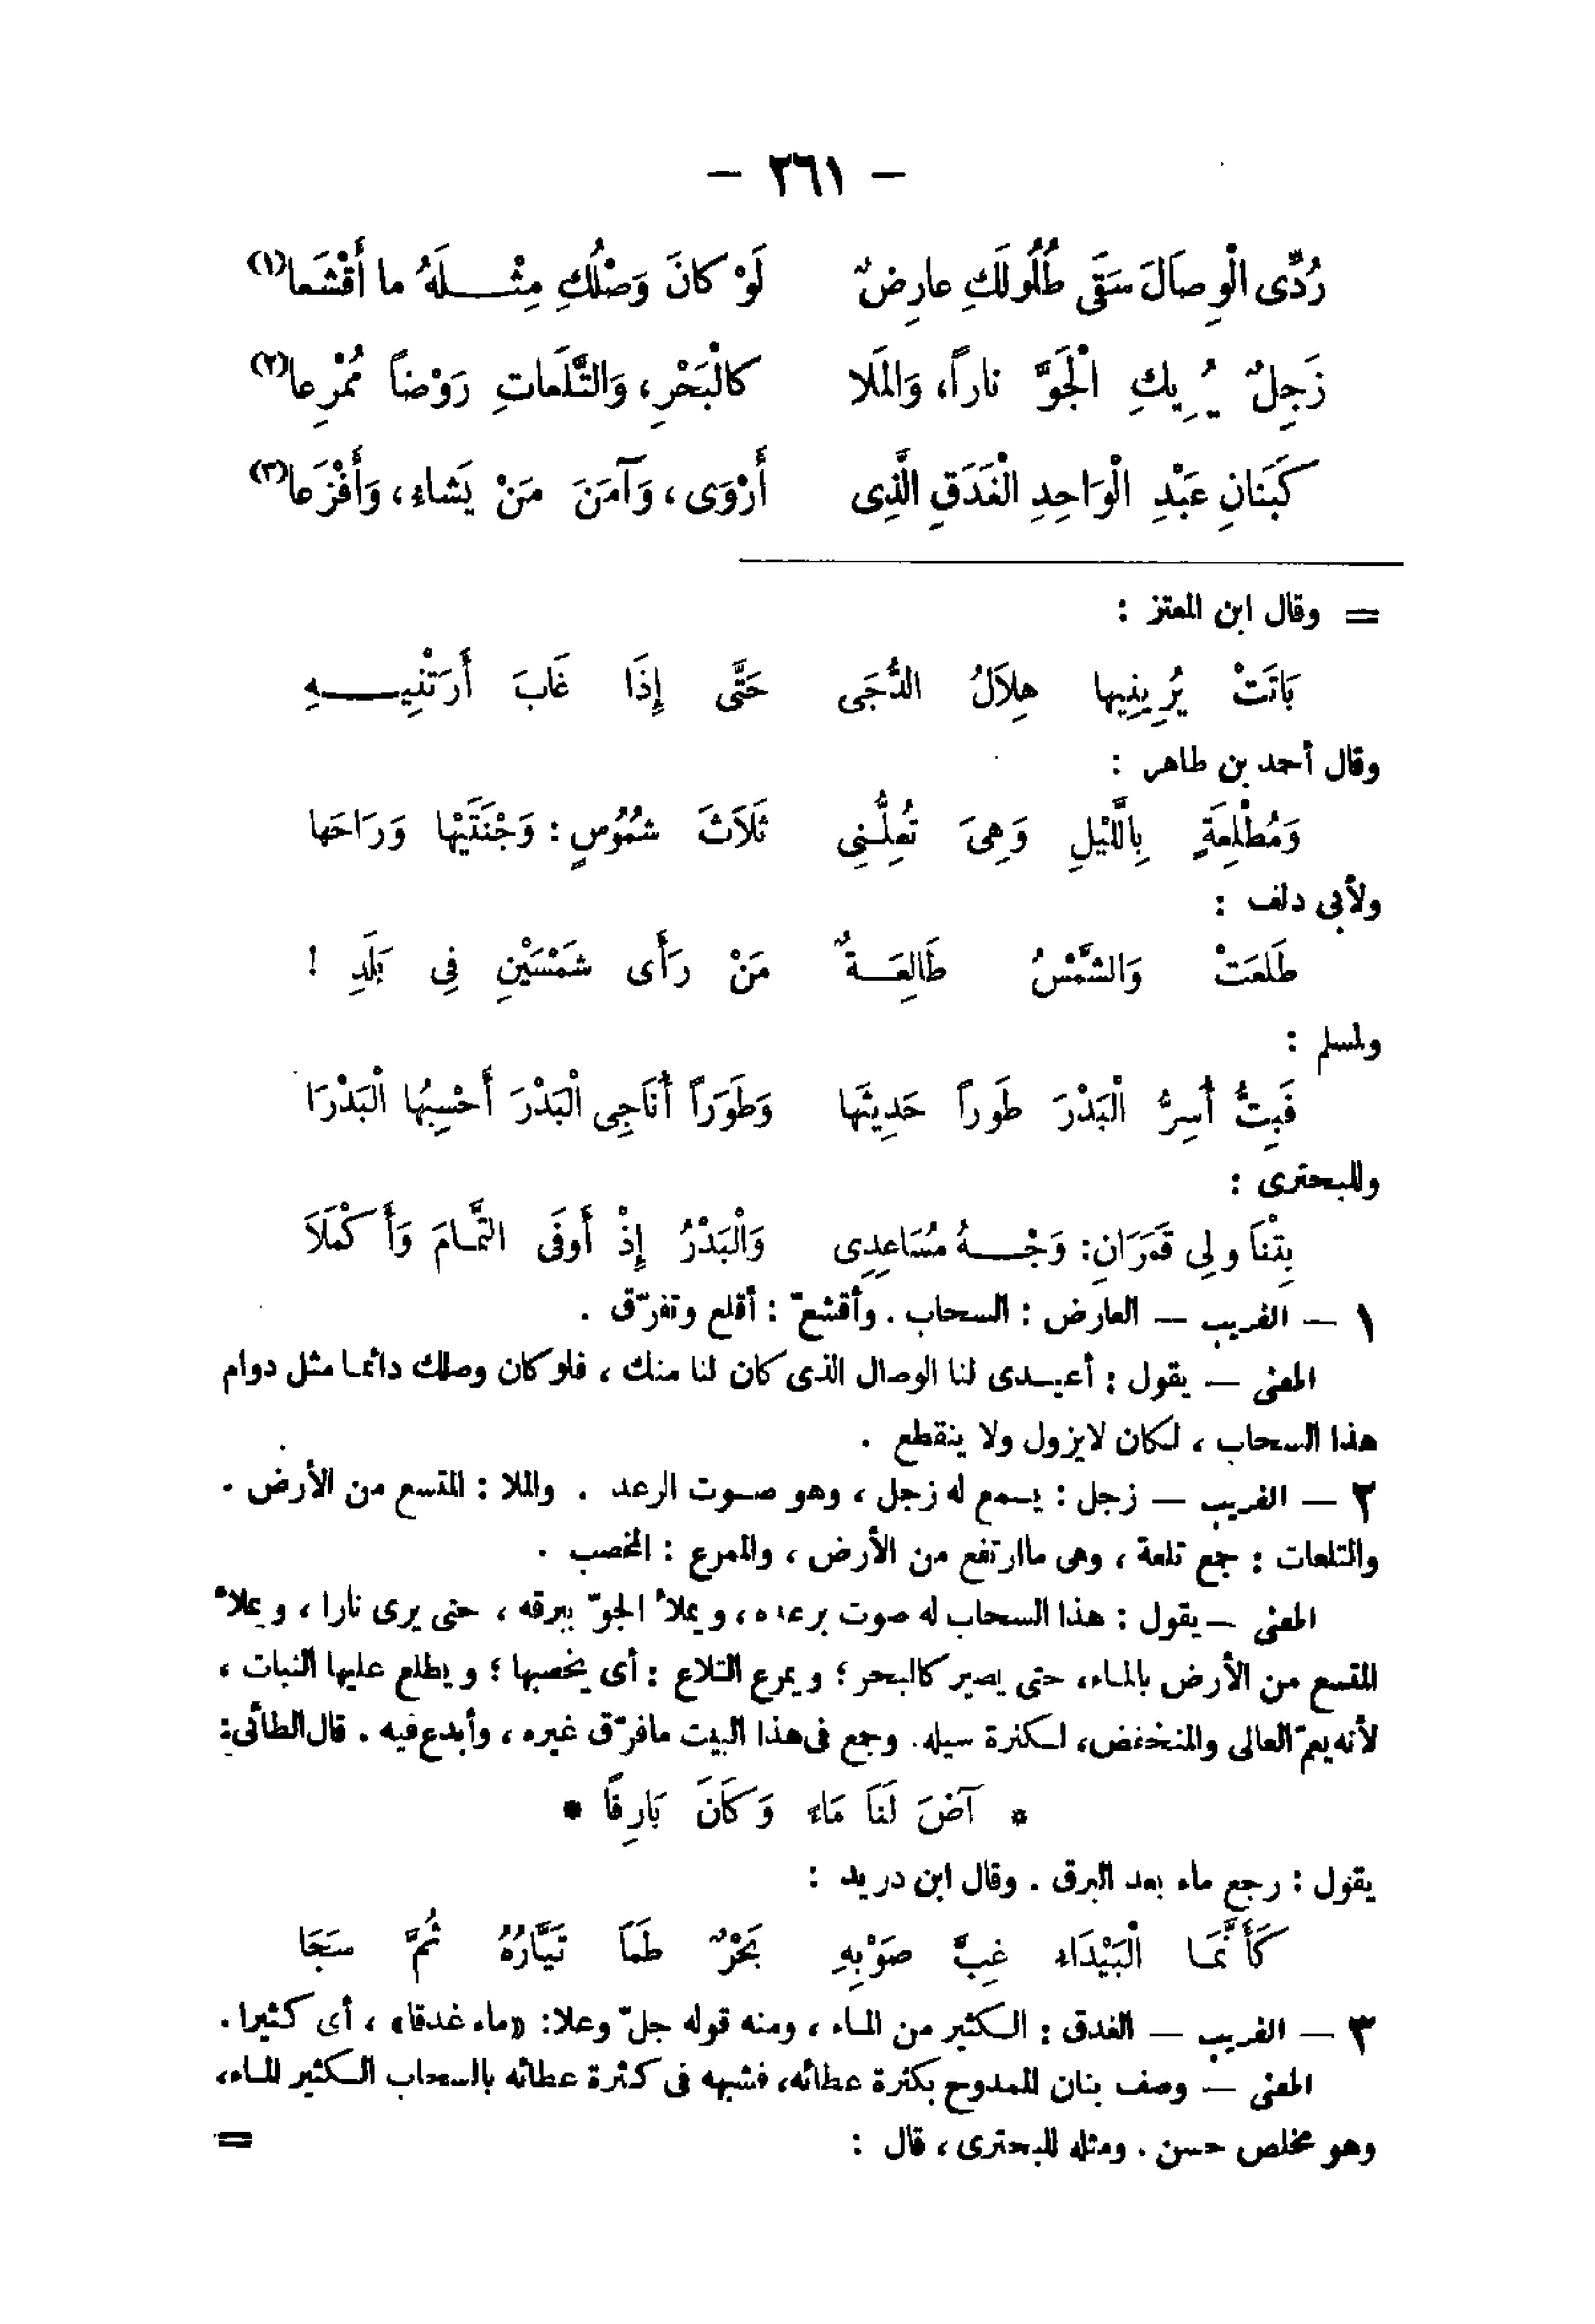 — ٢٦١ —
رُدِّى الْوِصَالَ سَقَى طُلُولَكِ عارِضٌ لَوْ كانَ وَصْلُكِ مِثْلَهُ ما أَقْشَعا(١)
زَجِلٌ يُرِيكِ الْجَوَّ ناراً، وَالمَلا كالْبَحْرِ، وَالتَّلَعاتِ رَوْضاً مُمْرِعا(٢)
كَبَنَانِ عَبْدِ الْوَاحِدِ الْغَدَقِ الَّذِى أَرْوَى، وَآمَنَ مَنْ يَشاءُ، وَأَفْزَعا(٣)
= وقال ابن المعتز :
بَاتَتْ يُرِينِيها هِلاَلُ الدُّجَى حَتَّى إِذَا غَابَ أَرَتْنِيهِ
وقال أحمد بن طاهر :
وَمُطْلِعَةٍ بِاللَّيْلِ وَهِىَ تُعِلُّنِى ثَلاَثَ شُمُوسٍ : وَجْنَتَيْها وَرَاحَها
ولأبى دلف :
طَلَعَتْ وَالشَّمْسُ طَالِعَةٌ مَنْ رَأَى شَمْسَيْنِ فِى بَلَدِ !
ولمسلم :
فَبِتُّ أُسِرُّ الْبَدْرَ طَوراً حَدِيثَها وَطَوَراً أُنَاجِى الْبَدْرَ أَحْسِبُها الْبَدْرَا
وللبحترى :
بِتْنَا ولِى قَمَرَانِ: وَجْهُ مُسَاعِدِى وَالْبَدْرُ إِذْ أَوفَى التَّمامَ وَأَكْمَلاَ
١ — الغريب — العارض : السحاب . وأقشع : أقلع وتفرّق .
المعنى — يقول : أعيدى لنا الوصال الذى كان لنا منك ، فلو كان وصلك دائما مثل دوام
هذا السحاب ، لكان لا يزول ولا ينقطع .
٢ — الغريب — زجل : يسمع له زجل ، وهو صوت الرعد . والملا : المتسع من الأرض .
والتلعات : جمع تلعة ، وهى ما ارتفع من الأرض ، والممرع : المخصب .
المعنى — يقول : هذا السحاب له صوت برعده ، ويملأ الجوّ ببرقه ، حتى يرى نارا ، ويملأ
المتسع من الأرض بالماء، حتى يصير كالبحر ؛ ويمرع التلاع : أى يخصبها ؛ ويطلع عليها النبات ،
لأنه يعمّ العالى والمنخفض، لكثرة سيله . وجمع فى هذا البيت ما فرّق غيره ، وأبدع فيه . قال الطائى:
* آضَ لَنَا مَاءً وَكَانَ بَارِقًا *
يقول : رجع ماء بعد البرق . وقال ابن دريد :
كَأَنَّمَا الْبَيْدَاءُ غِبَّ صَوْبِهِ بَحْرٌ طَمَا تَيَّارُهُ ثُمَّ سَجَا
٣ — الغريب — الغدق : الكثير من الماء ، ومنه قوله جلّ وعلا: «ماء غدقا» ، أى كثيرا .
المعنى — وصف بنان الممدوح بكثرة عطائه، فشبهه فى كثرة عطائه بالسحاب الكثير الماء،
وهو مخلص حسن . ومثله للبحترى ، قال : =